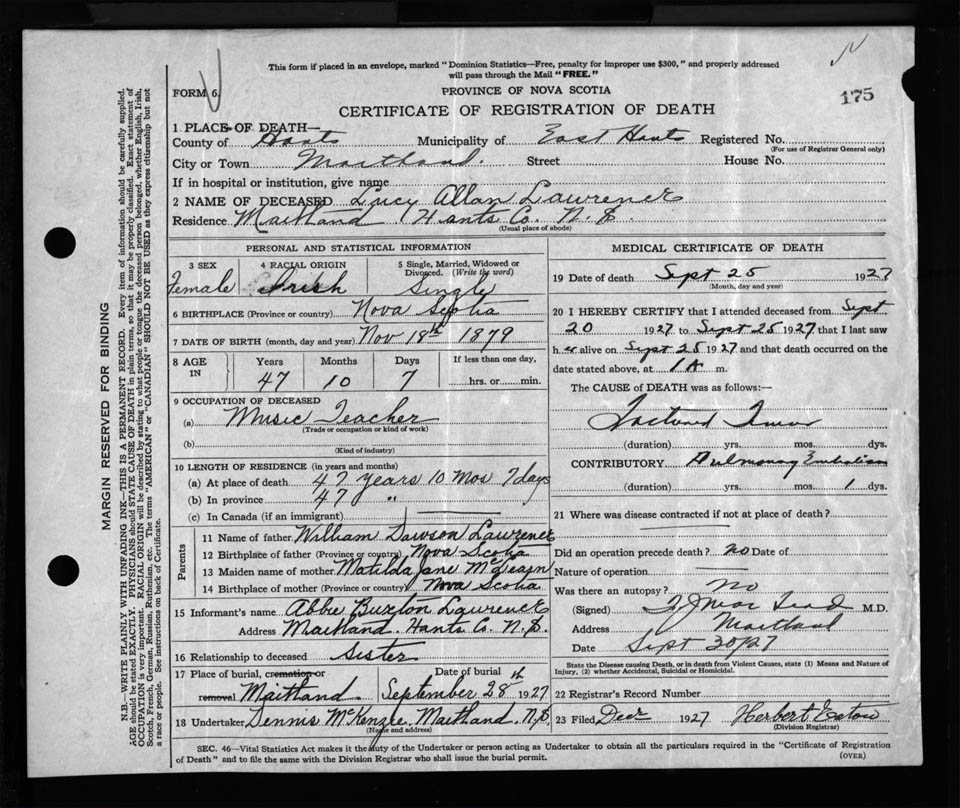 This form if placed in an envelope, marked "Dominion Statistics—Free, penalty for improper use $300," and properly addressed
will pass through the Mail "FREE."
FORM 6.
PROVINCE OF NOVA SCOTIA
175
CERTIFICATE OF REGISTRATION OF DEATH
1 PLACE OF DEATH—
County of Hants Municipality of East Hants Registered No.
(For use of Registrar General only)
City or Town Maitland. Street House No.
If in hospital or institution, give name
2 NAME OF DECEASED Lucy Allan Lawrence
Residence Maitland Hants Co. N.S.
(Usual place of abode)
PERSONAL AND STATISTICAL INFORMATION
3 SEX 4 RACIAL ORIGIN 5 Single, Married, Widowed or
Divorced. (Write the word)
Female Irish Single
6 BIRTHPLACE (Province or country) Nova Scotia
7 DATE OF BIRTH (month, day and year) Nov 18th 1879
8 AGE IN Years Months Days If less than one day,
47 10 7 hrs. or min.
9 OCCUPATION OF DECEASED
(a) Music Teacher
(Trade or occupation or kind of work)
(b)
(Kind of industry)
10 LENGTH OF RESIDENCE (in years and months)
(a) At place of death 47 years 10 Mos 7 days
(b) In province 47 "
(c) In Canada (if an immigrant)
Parents
11 Name of father William Dawson Lawrence
12 Birthplace of father (Province or country) Nova Scotia
13 Maiden name of mother Matilda Jane
14 Birthplace of mother (Province or country) Nova Scotia
15 Informant's name Abbie Buxton Lawrence
Address Maitland. Hants Co. N.S.
16 Relationship to deceased Sister
17 Place of burial, cremation or Date of burial
removal Maitland. September 28th 1927
18 Undertaker Dennis McKenzie Maitland. N.S.
(Name and address)
MEDICAL CERTIFICATE OF DEATH
19 Date of death Sept 25 1927
(Month, day and year)
20 I HEREBY CERTIFY that I attended deceased from Sept
20 1927 to Sept 25 1927 that I last saw
her alive on Sept 25 1927 and that death occurred on the
date stated above, at 1 A m.
The CAUSE OF DEATH was as follows:—
Femur
(duration) yrs. mos. dys.
CONTRIBUTORY Pulmonary Embolism
(duration) yrs. mos. 1 dys.
21 Where was disease contracted if not at place of death?
Did an operation precede death? no Date of
Nature of operation
Was there an autopsy? no
(Signed) M.D.
Address Maitland
Date Sept 30/27
State the Disease causing Death, or in death from Violent Causes, state (1) Means and Nature of
Injury, (2) whether Accidental, Suicidal or Homicidal.
22 Registrar's Record Number
23 Filed 1927 Herbert Eaton
(Division Registrar)
SEC. 46—Vital Statistics Act makes it the duty of the Undertaker or person acting as Undertaker to obtain all the particulars required in the "Certificate of Registration
of Death" and to file the same with the Division Registrar who shall issue the burial permit.
(OVER)
MARGIN RESERVED FOR BINDING
N.B.—WRITE PLAINLY WITH UNFADING INK—THIS IS A PERMANENT RECORD. Every item of information should be carefully supplied.
AGE should be stated EXACTLY. PHYSICIANS should STATE CAUSE OF DEATH in plain terms, so that it may be properly classified. Exact statement of
OCCUPATION is very important. RACIAL ORIGIN will be described by stating to what people or tongue the deceased person belonged, whether English, Irish,
Scotch, French, German, Russian, Ruthenian, etc. The terms "AMERICAN" or "CANADIAN" SHOULD NOT BE USED as they express citizenship but not
a race or people. See instructions on back of Certificate.